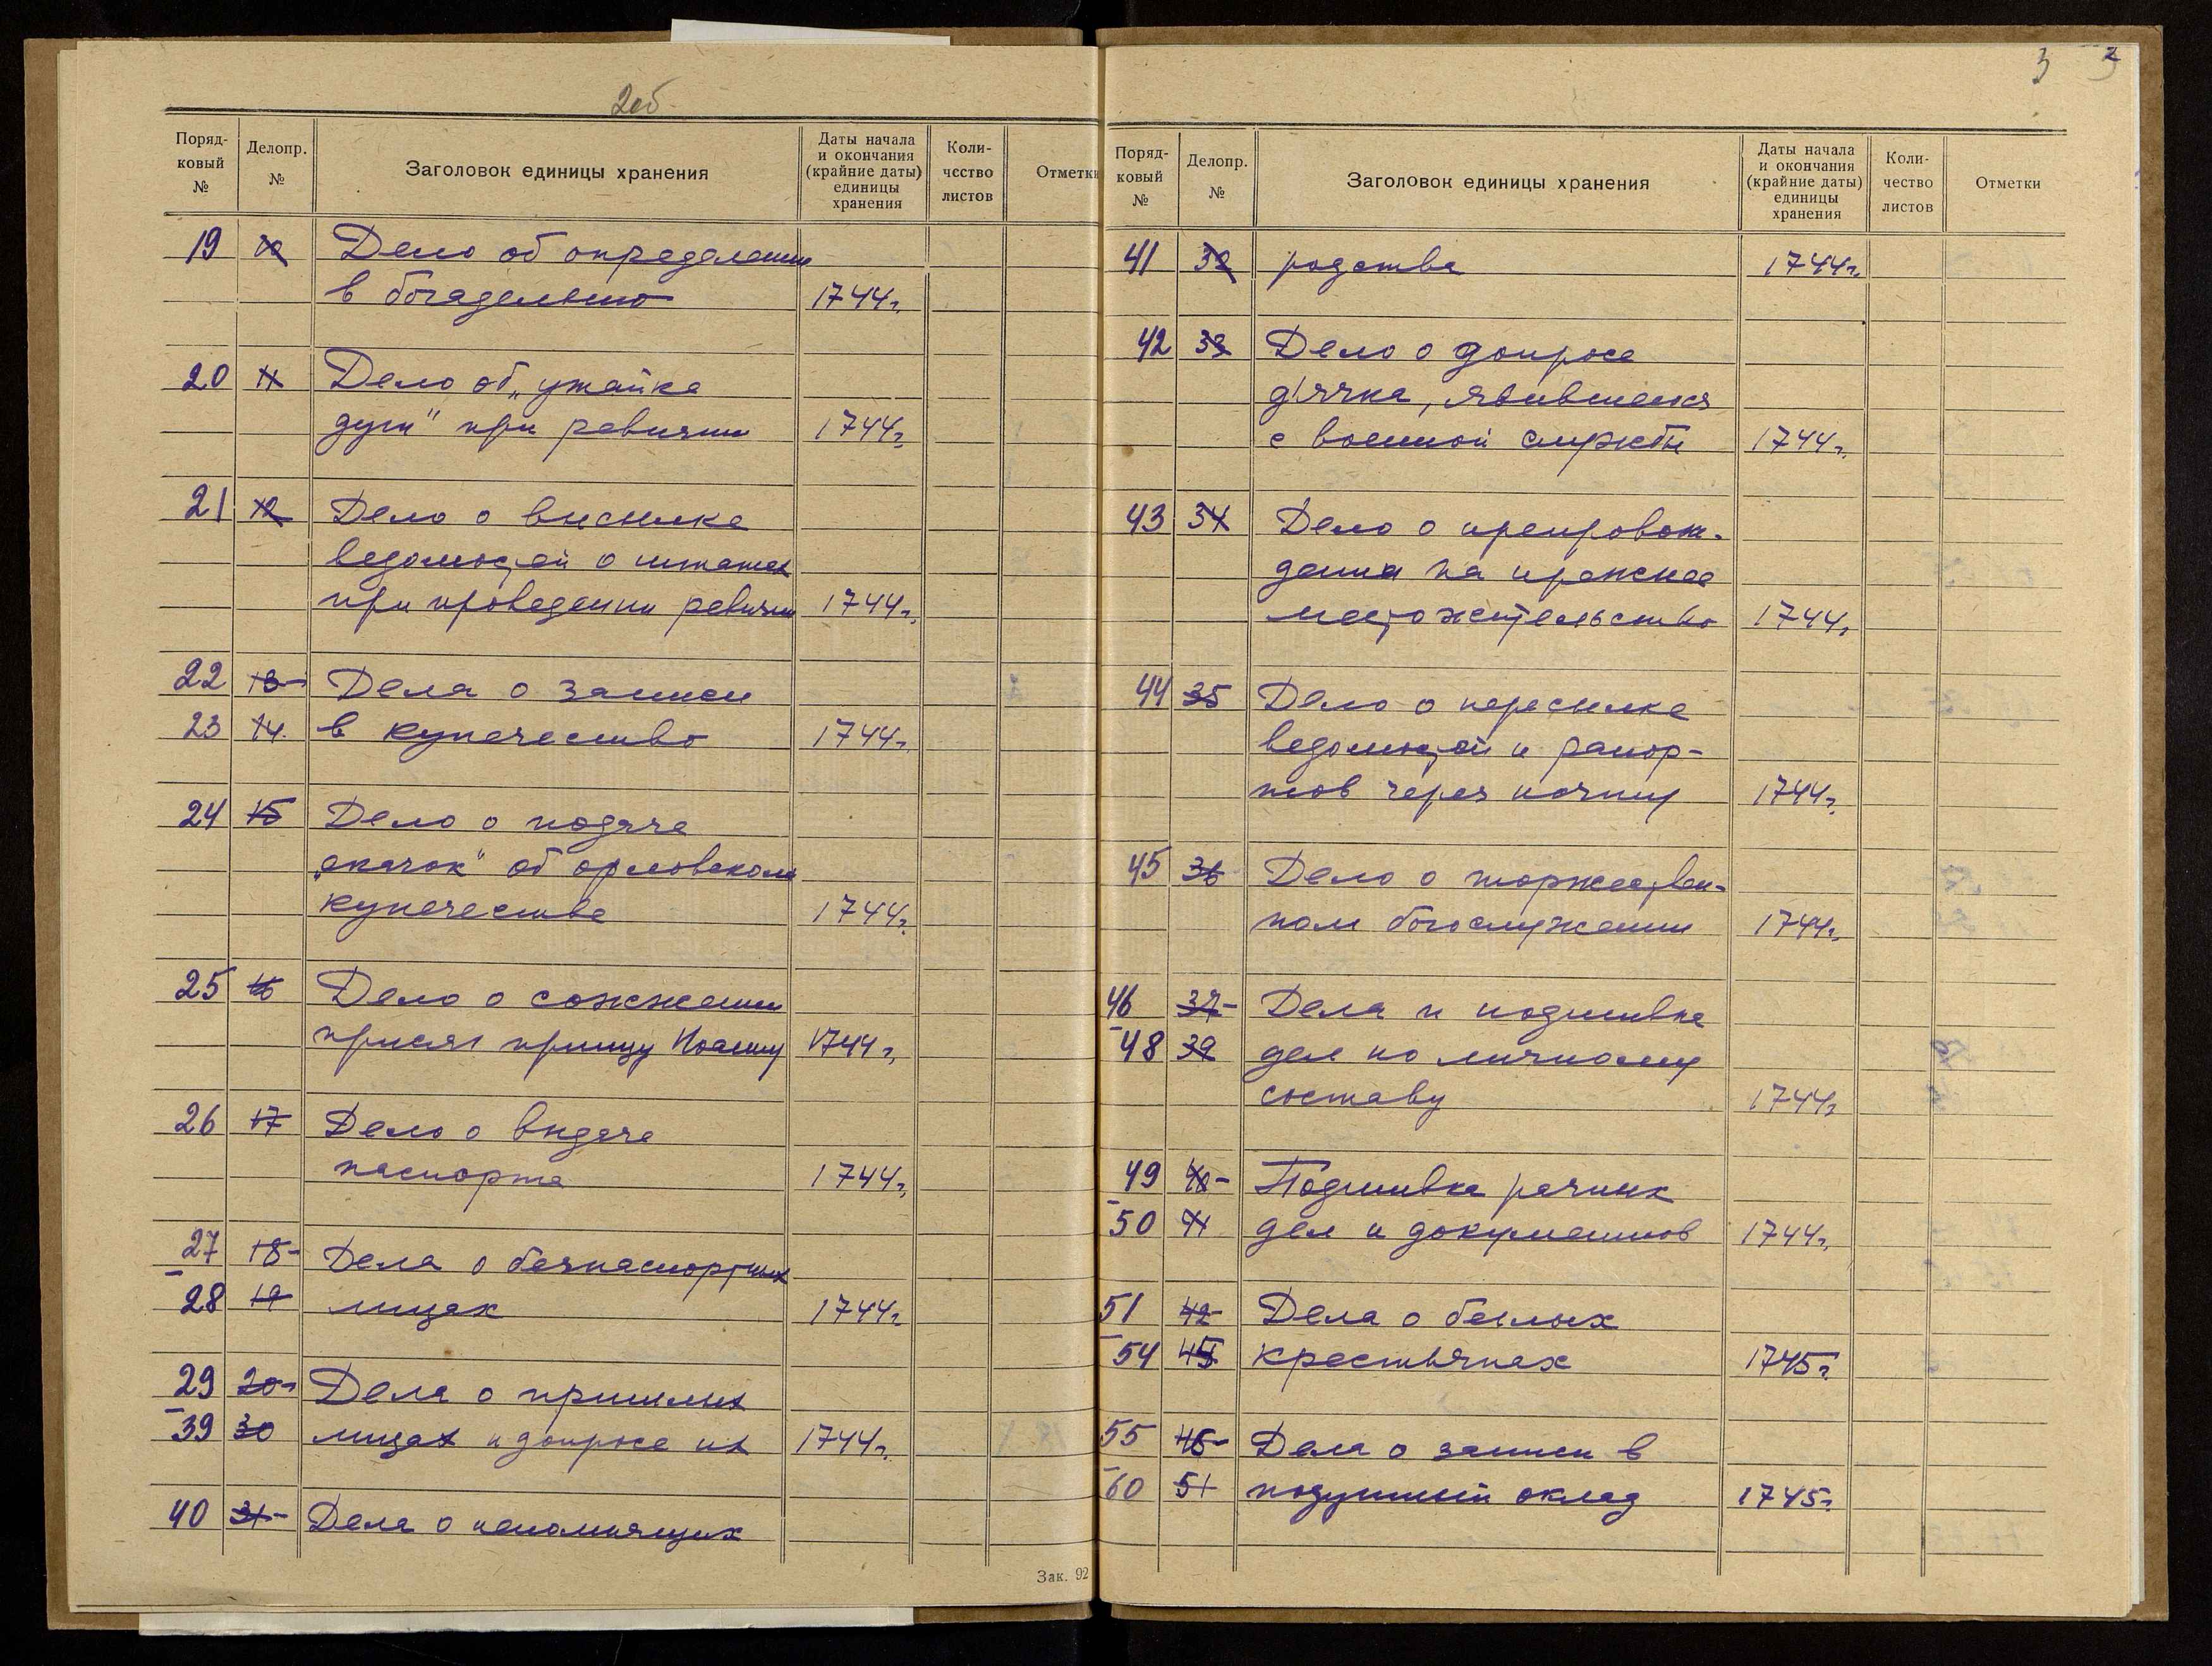 2об
Поряд-
ковый
№
Делопр.
№
Заголовок единицы хранения
Даты начала
и окончания
(крайние даты)
единицы
хранения
Коли-
чество
листов
Отметки
19 10 Дело об определении
в богадельню 1744г.
20 11 Дело об „утайке
душ" при ревизии 1744г.
21 12 Дело о высылке
ведомостей о штатах
при проведении ревизии 1744г.
22 13- Дела о записи
23 14. в купечество 1744г.
24 15 Дело о подаче
„сказок" об орловском
купечестве 1744г.
25 16 Дело о сожжении
присяг принцу Иоанну 1744г.
26 17 Дело о выдаче
паспорта 1744г.
27 18- Дела о безпаспортных
- 28 19 лицах 1744г.
29 20- Дела о пришлых
- 39 30 лицах и допросе их 1744г.
40 31- Дела о непомнящих
Зак. 92
3
Поряд-
ковый
№
Делопр.
№
Заголовок единицы хранения
Даты начала
и окончания
(крайние даты)
единицы
хранения
Коли-
чество
листов
Отметки
41 32 родства 1744г.
42 33 Дело о допросе
дьячка, явившегося
с военной службы 1744г.
43 34 Дело о препровож-
дении на прежнее
местожительство 1744г.
44 35 Дело о пересылке
ведомостей и рапор-
тов через почту 1744г.
45 36 Дело о торжествен-
ном богослужении 1744г.
46 37- Дела и подшивка
- 48 39 дел по личному
составу 1744г.
49 40- Подшивка разных
- 50 41 дел и документов 1744г.
51 42- Дела о беглых
- 54 45 крестьянах 1745г.
55 46- Дела о записи в
- 60 51 подушный оклад 1745г.